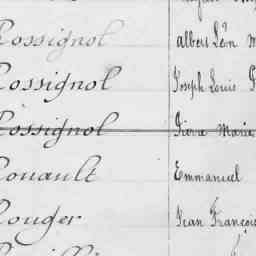 Rossignol albert Léon
Rossignol Joseph Louis
Rossignol Pierre Marie
Rouault Emmanuel
Rouger Jean François